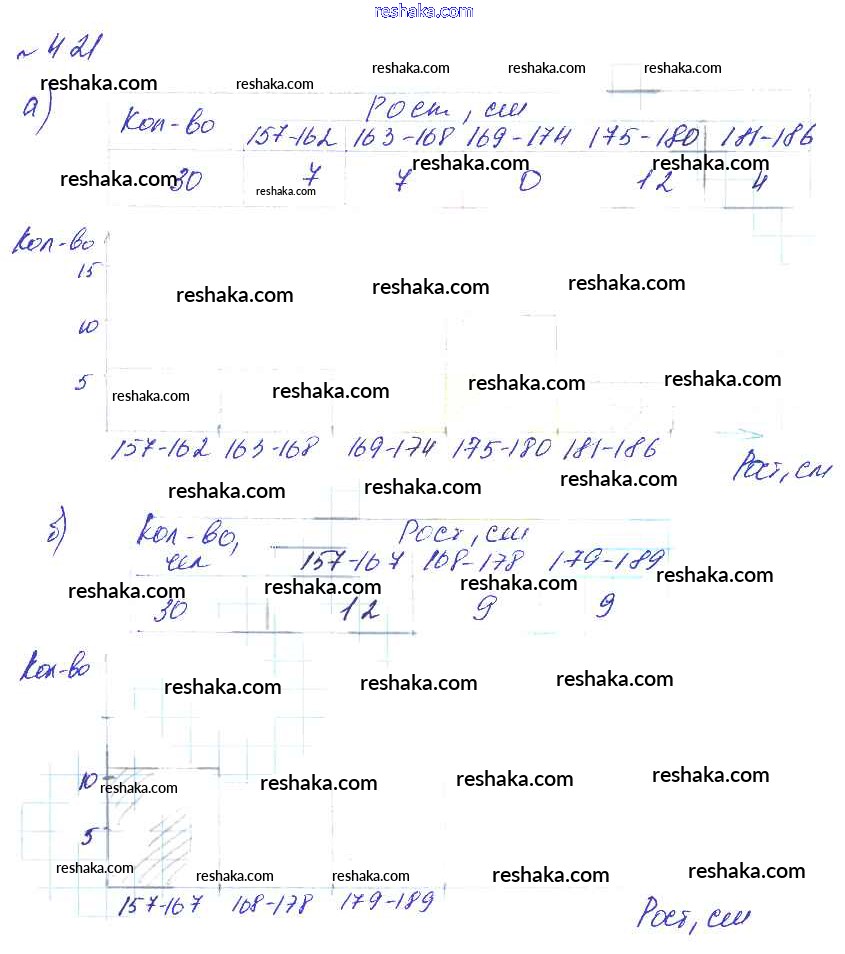 reshaka.com
№ 421
reshaka.com reshaka.com reshaka.com reshaka.com reshaka.com
а) Кол-во Рост, см
157-162 163-168 169-174 175-180 181-186
reshaka.com reshaka.com
reshaka.com 30 7 7 0 12 4
reshaka.com
Кол-во
15
reshaka.com reshaka.com reshaka.com
10
5
reshaka.com reshaka.com reshaka.com reshaka.com
157-162 163-168 169-174 175-180 181-186
Рост, см
reshaka.com reshaka.com reshaka.com
б) Кол-во, Рост, см
чел 157-167 168-178 179-189
reshaka.com reshaka.com reshaka.com reshaka.com
30 12 9 9
Кол-во
reshaka.com reshaka.com reshaka.com
10 reshaka.com reshaka.com reshaka.com reshaka.com
5
reshaka.com reshaka.com reshaka.com reshaka.com reshaka.com
157-167 168-178 179-189
Рост, см